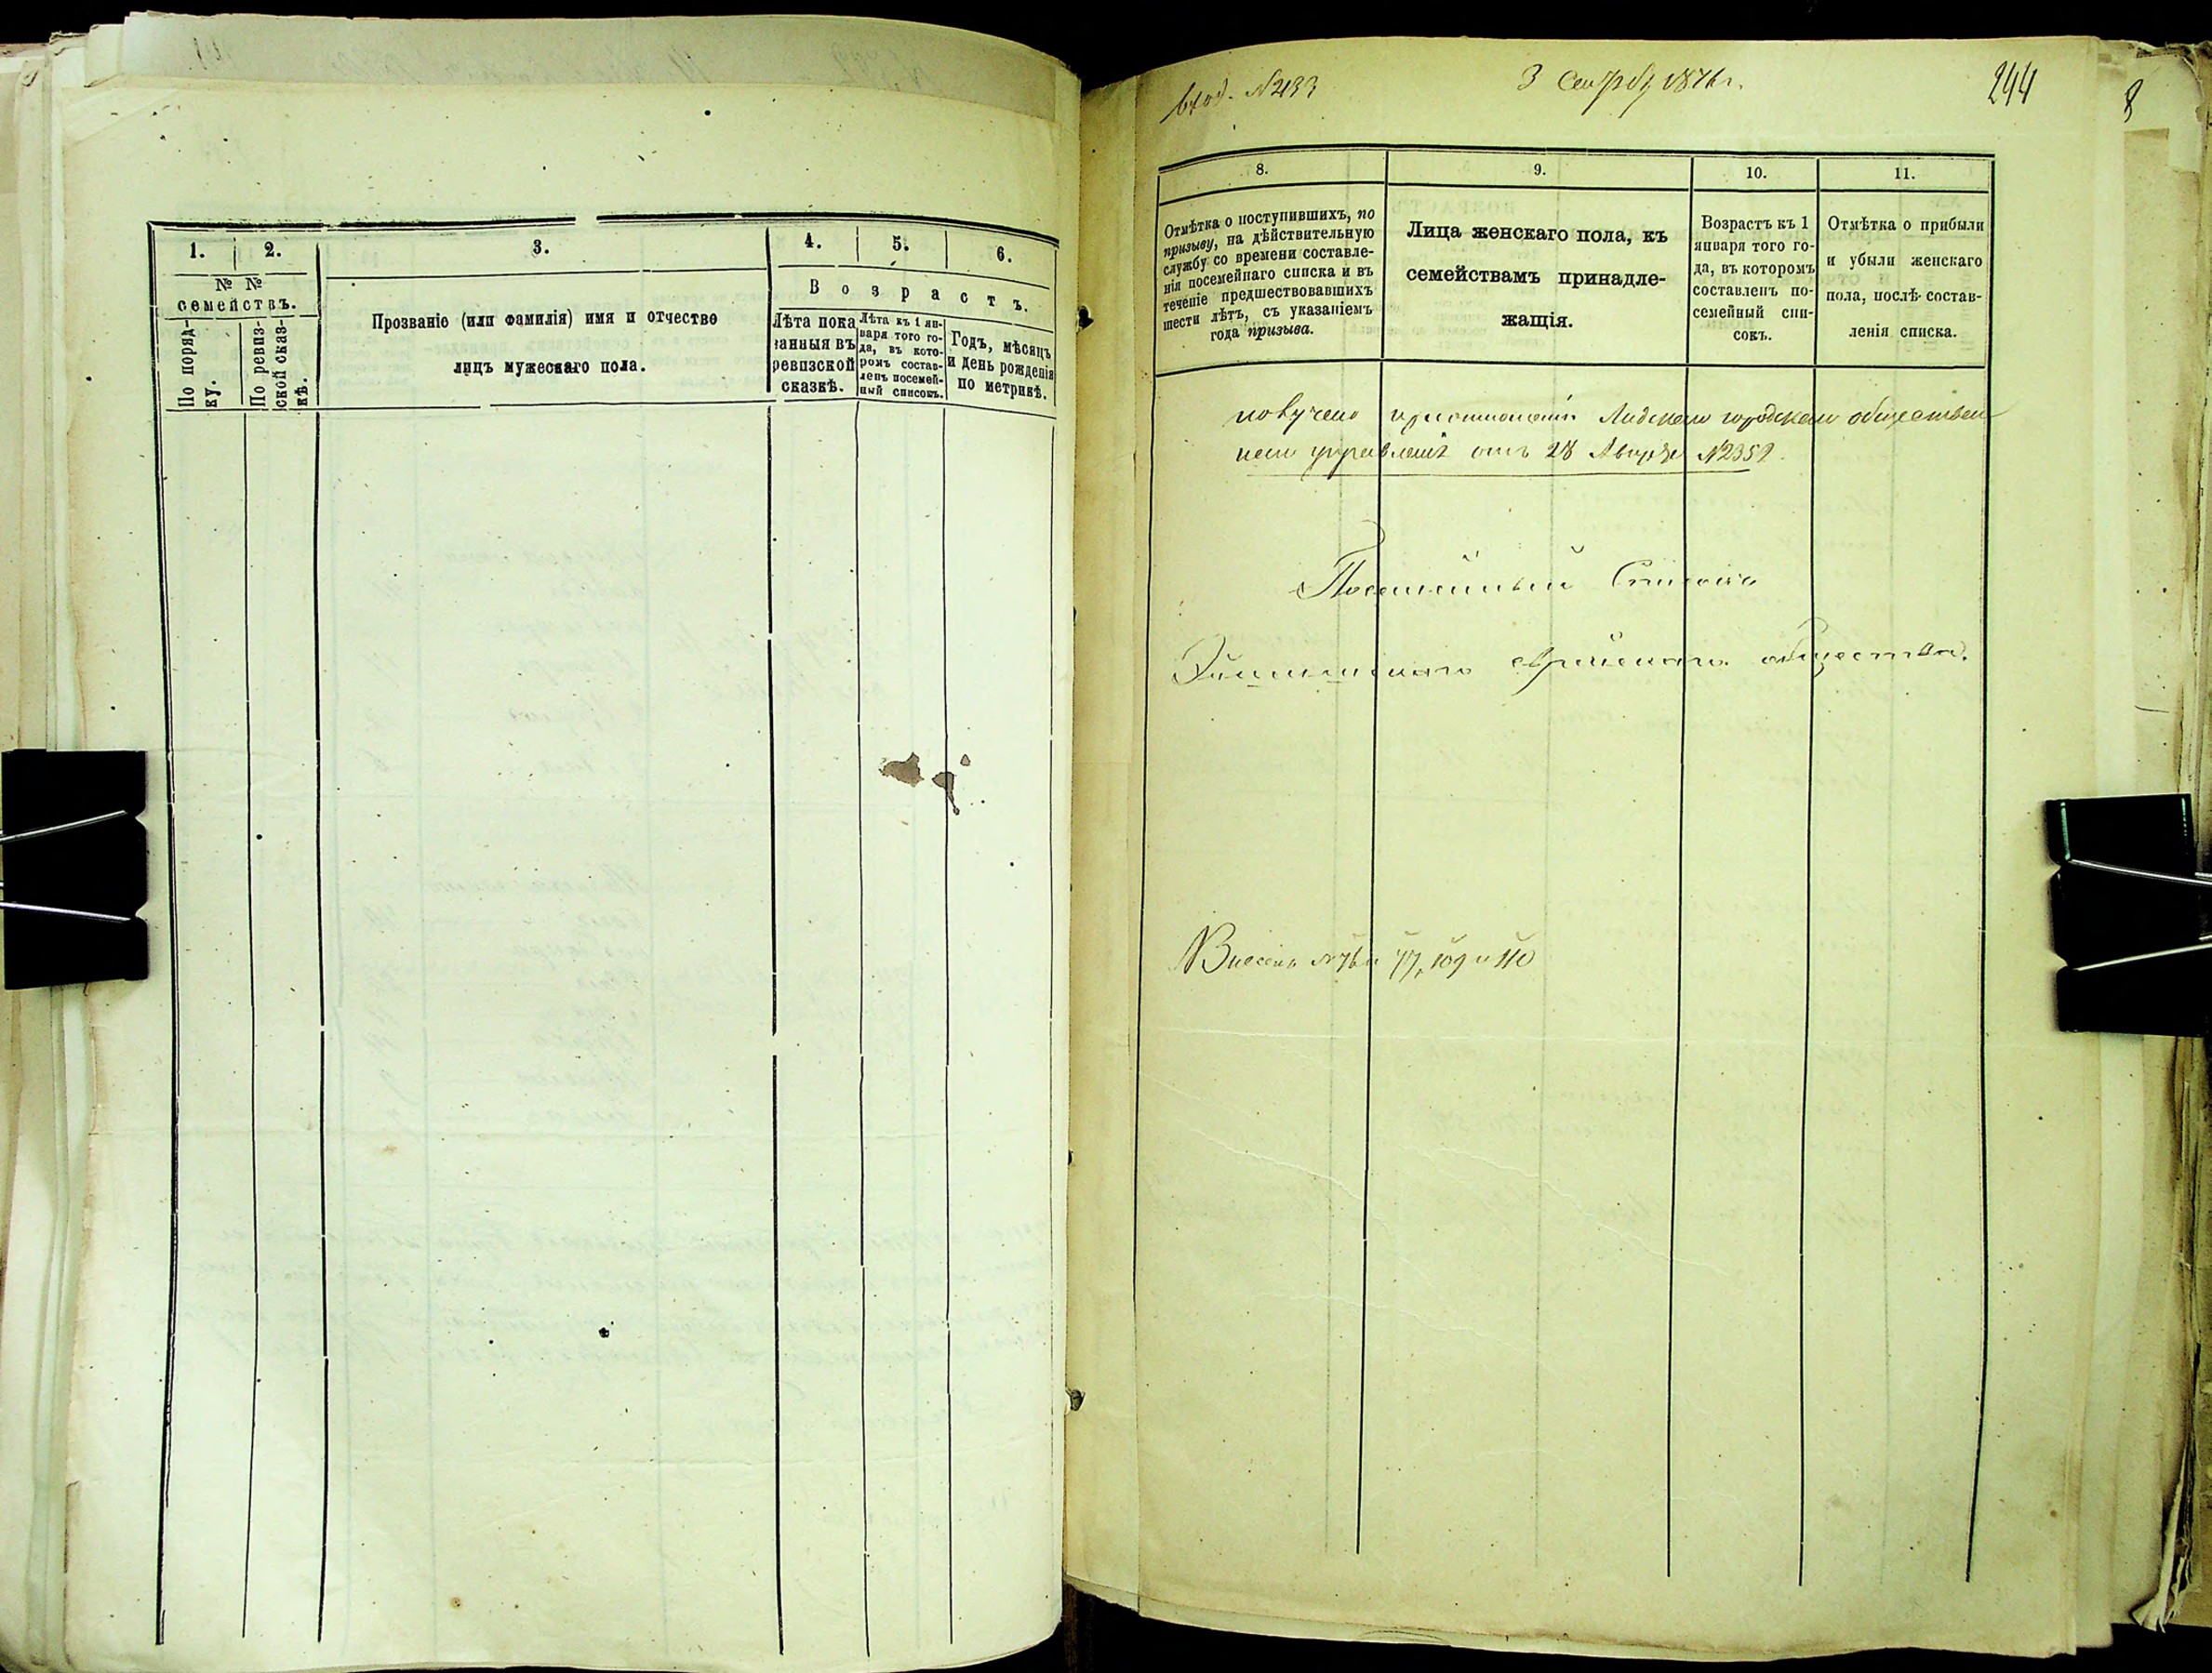 1.
2.
3.
4.
5.
6.
№ №
семействъ.
По поряд-
ку.
По ревиз-
ской сказ-
кѣ.
Прозваніе (или фамилія) имя и отчество
лицъ мужескаго пола.
Возрастъ.
Лѣта пока
занныя въ
ревизской
сказкѣ.
Лѣта къ 1 ян-
варя того го-
да, въ кото-
ромъ состав-
ленъ посемей-
ный списокъ.
Годъ, мѣсяцъ
и день рожденія
по метрикѣ.
вход. №433
3 Сентяб 1876 г.
244
8
8.
9.
10.
11.
Отмѣтка о поступившихъ, по
призыву, на дѣйствительную
службу со времени составле-
нія посемейнаго списка и въ
теченіе предшествовавшихъ
шести лѣтъ, съ указаніемъ
года призыва.
Лица женскаго пола, къ
семействамъ принадле-
жащія.
Возрастъ къ 1
января того го-
да, въ которомъ
составленъ по-
семейный спи-
сокъ.
Отмѣтка о прибыли
и убыли женскаго
пола, послѣ состав-
ленія списка.
получено при отношеніи Лидскаго городскаго обществен
наго управленія отъ 28 Августа №2352
Посемейный Списокъ
Эйшишскаго еврейскаго общества.
Внесены №76 и 77, 109 и 110